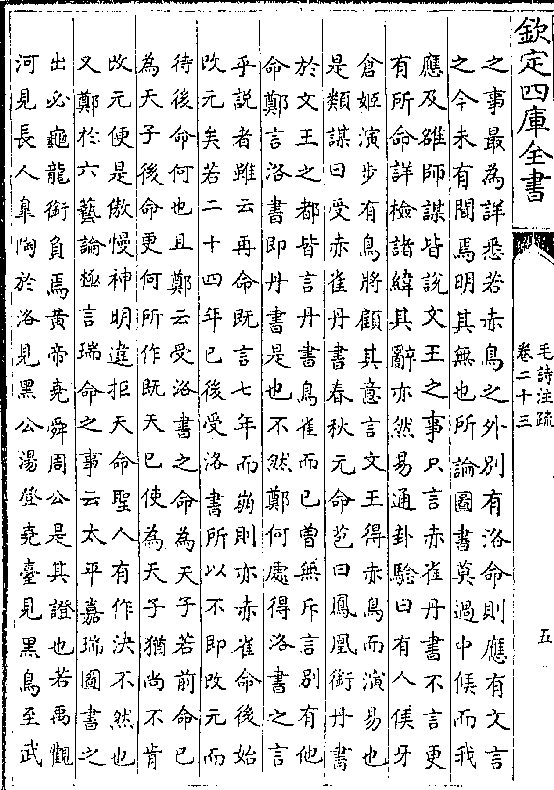 欽定四庫全書
毛詩注疏
卷二十三
五
之事最為詳悉若赤鳥之外別有洛命則應有文言
之今未有聞焉明其無也所論圖書莫過中候而我
應及雒師謀皆說文王之事只言赤雀丹書不言更
有所命詳檢諸緯其辭亦然易通卦驗曰有人侯牙
倉姬演步有鳥將顧其意言文王得赤鳥而演易也
是類謀曰受赤雀丹書春秋元命苞曰鳳凰銜丹書
於文王之都皆言丹書鳥雀而已曾無斥言別有他
命鄭言洛書即丹書是也不然鄭何處得洛書之言
乎說者雖云再命既言七年而崩則亦赤雀命後始
改元矣若二十四年已後受洛書所以不即改元而
待後命何也且鄭云受洛書之命為天子若前命已
為天子後命更何所作既天已使為天子猶尚不肯
改元便是傲慢神明違拒天命聖人有作決不然也
又鄭於六藝論極言瑞命之事云太平嘉瑞圖書之
出必龜龍銜負焉黃帝堯舜周公是其證也若禹觀
河見長人臯陶於洛見黑公湯登堯臺見黑鳥至武